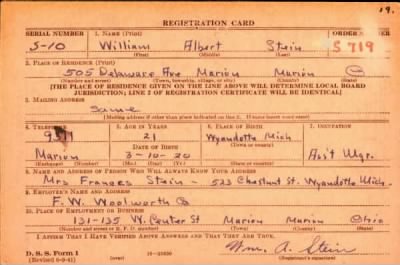 19.
REGISTRATION CARD
SERIAL NUMBER 1. NAME (Print) ORDER NUMBER
S-10 William Albert Stein S 719
(First) (Middle) (Last)
2. PLACE OF RESIDENCE (Print)
505 Delaware Ave Marion Marion O
(Number and street) (Town, township, village, or city) (County) (State)
[THE PLACE OF RESIDENCE GIVEN ON THE LINE ABOVE WILL DETERMINE LOCAL BOARD
JURISDICTION; LINE 2 OF REGISTRATION CERTIFICATE WILL BE IDENTICAL]
3. MAILING ADDRESS
Same
[Mailing address if other than place indicated on line 2. If same insert word same]
4. TELEPHONE 5. AGE IN YEARS 6. PLACE OF BIRTH 7. OCCUPATION
21 Wyandotte Mich
DATE OF BIRTH (Town or county)
Marion 3-10-20 Ass't Mgr.
(Exchange) (Number) (Mo.) (Day) (Yr.) (State or country)
8. NAME AND ADDRESS OF PERSON WHO WILL ALWAYS KNOW YOUR ADDRESS
Mrs Frances Stein - 523 Chestnut St. Wyandotte Mich.
9. EMPLOYER'S NAME AND ADDRESS
F. W. Woolworth Co
10. PLACE OF EMPLOYMENT OR BUSINESS
131-135 W. Center St Marion Marion Ohio
(Number and street or R. F. D. number) (Town) (County) (State)
I AFFIRM THAT I HAVE VERIFIED ABOVE ANSWERS AND THAT THEY ARE TRUE.
D. S. S. Form 1 Wm. A. Stein
(Revised 6-9-41)